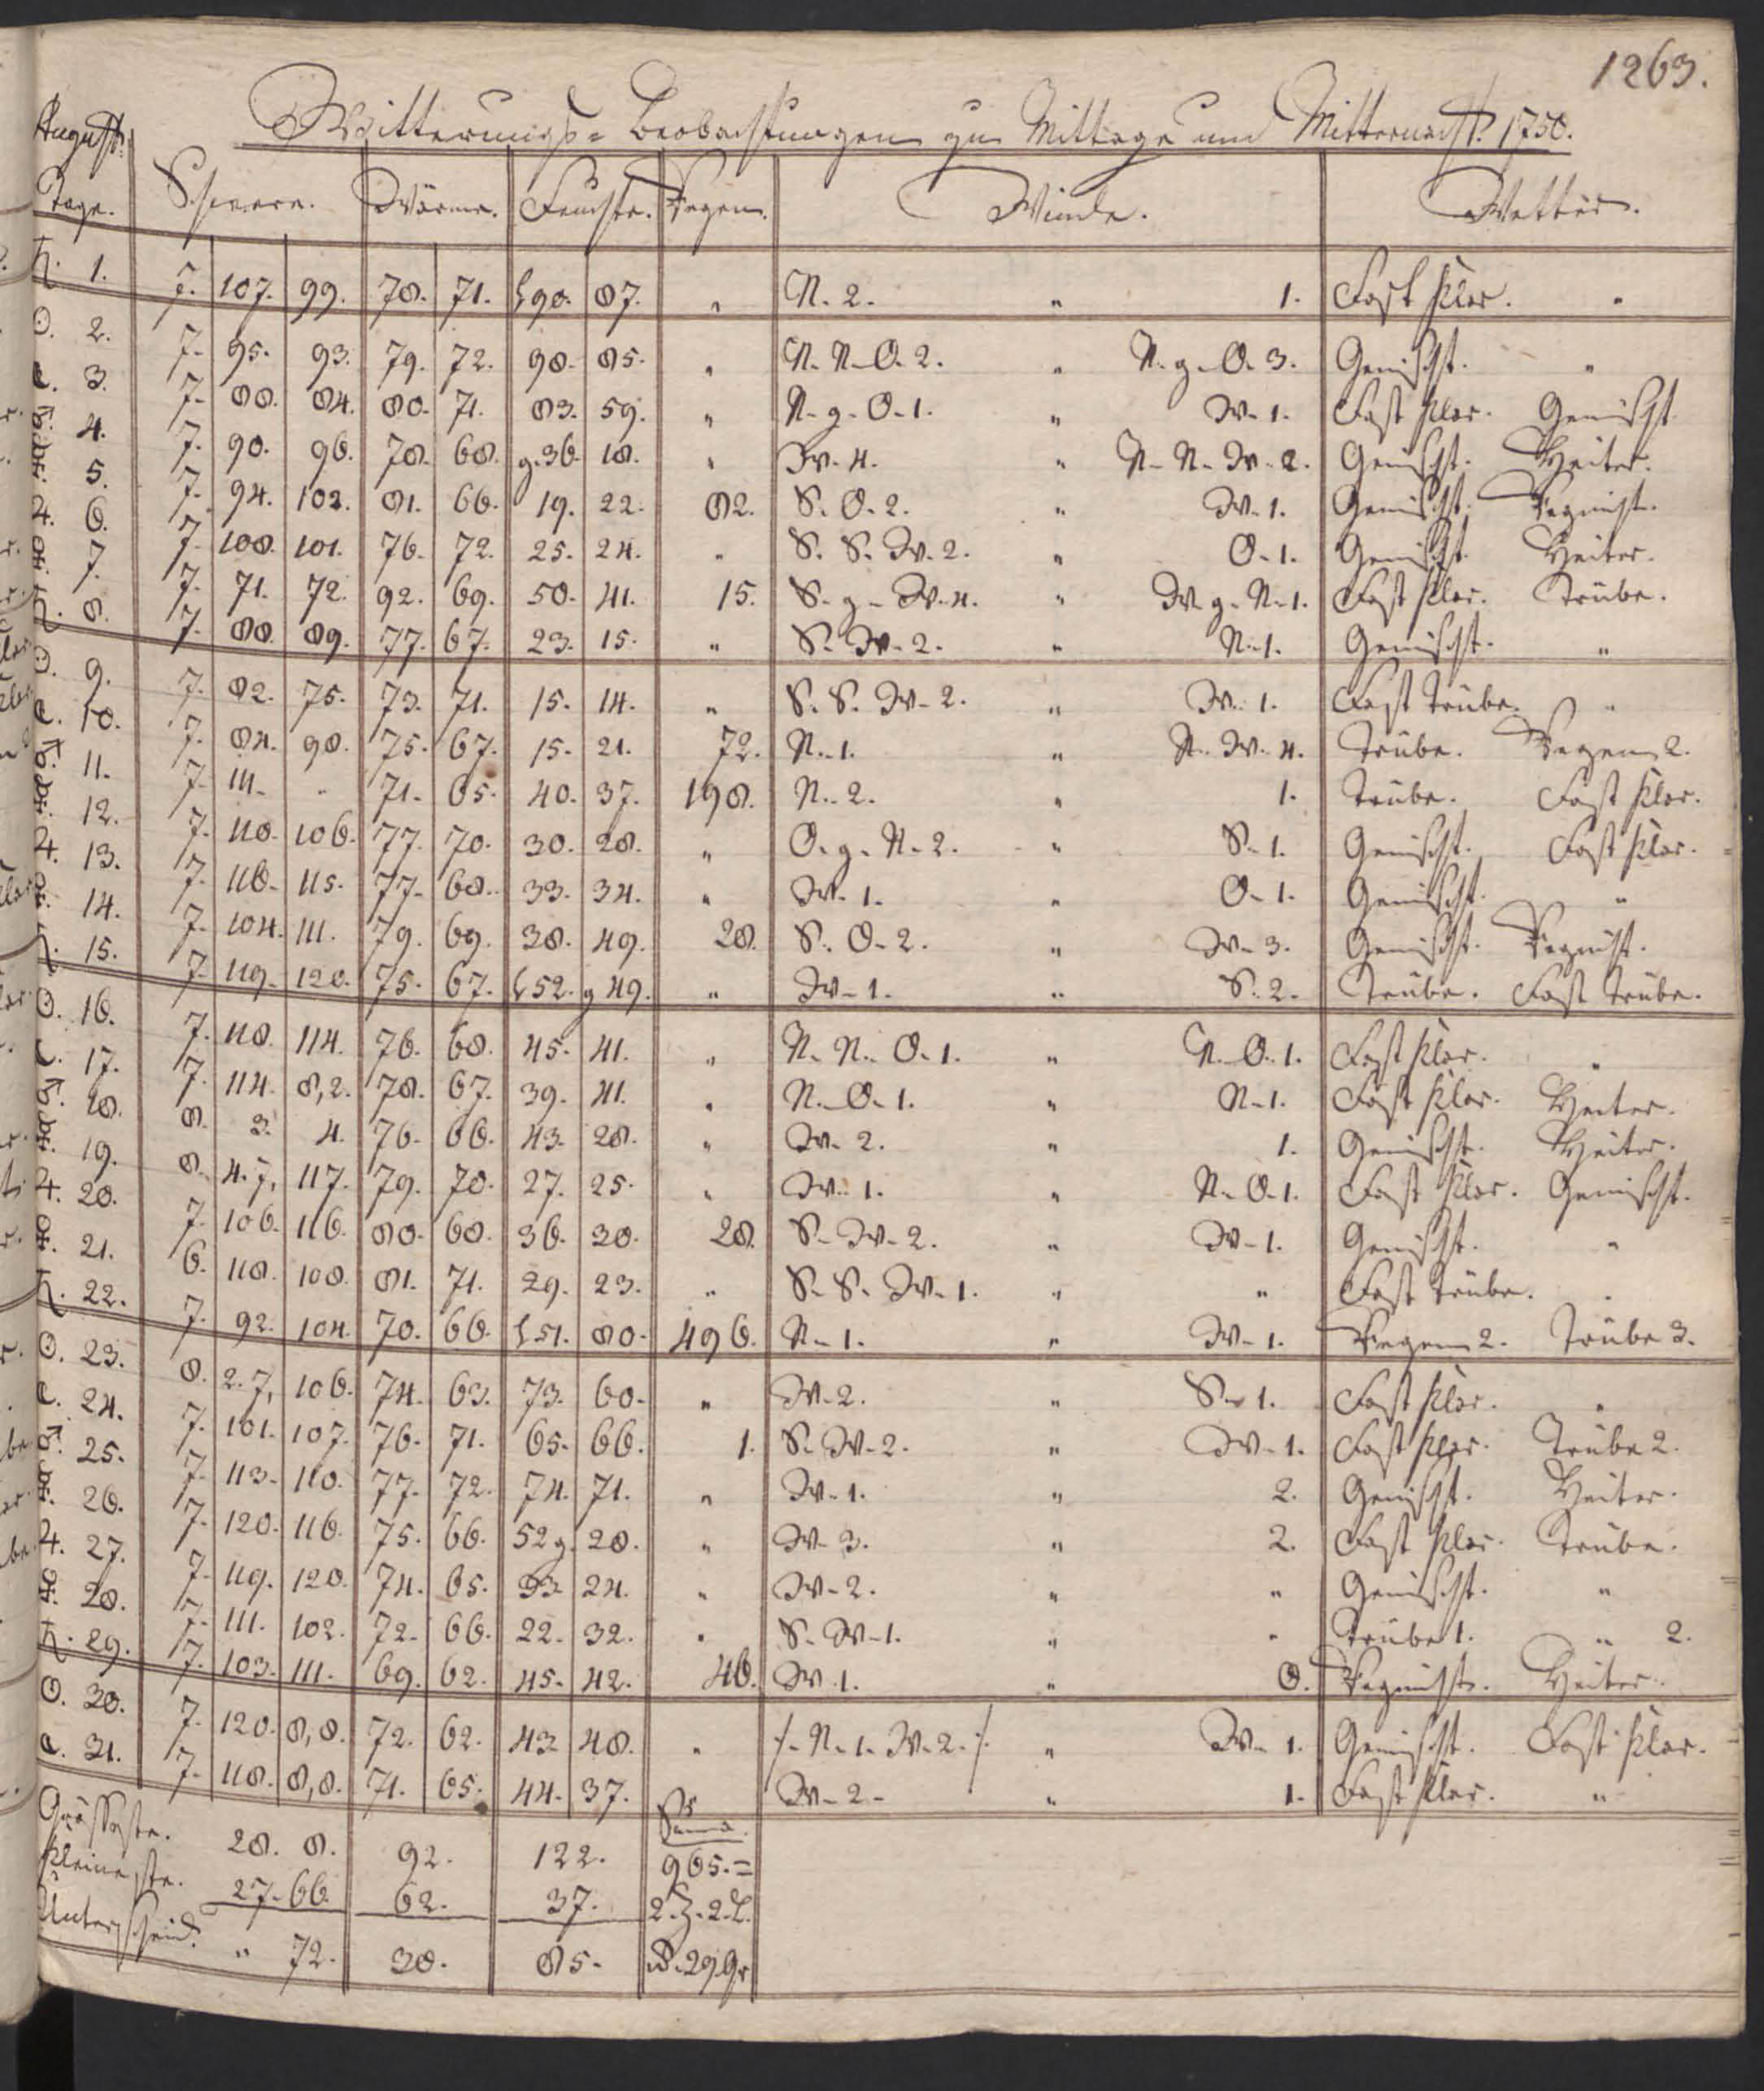 1263.
Witterungs=Beobachtungen zu Mittage und Mitternacht. 1750.
August.
Tage. Schwere. Wärme. Feuchte. Regen. Winde. Wetter.
♄. 1. 7. 107. 99. 78. 71. 90. 87. " N. 2. " 1. Fast klar. "
☉. 2. 7. 95. 93. 79. 72. 90. 85. " N. N. O. 2. " N. g. O. 3. Gemischt. "
☾. 3. 7. 88. 84. 80. 71. 83. 59. " N. g. O. 1. " W. 1. Fast klar. Gemischt
♂. 4. 7. 90. 96. 78. 68. g. 36. 18. " W. 4. " N. N. W. 2. Gemischt. Heiter.
☿. 5. 7. 94. 102. 81. 66. 19. 22. 82. S. O. 2. " W. 1. Gemischt. Regnicht.
♃. 6. 7. 108. 101. 76. 72. 25. 24. " S. S. W. 2. " O. 1. Gemischt. Heiter.
♀. 7. 7. 71. 72. 92. 69. 50. 41. 15. S. g. W. 4. " W. g. N. 1. Fast klar. Trübe.
♄. 8. 7. 88. 89. 77. 67. 23. 15. " S. W. 2. " N. 1. Gemischt. "
☉. 9. 7. 82. 75. 73. 71. 15. 14. " S. S. W. 2. " W. 1. Fast trübe. "
☾. 10. 7. 84. 98. 75. 67. 15. 21. 72. N. 1. " N. W. 4. Trübe. Regen 2.
♂. 11. 7. 111. " 71. 65. 40. 37. 198. N. 2. " 1. Trübe. Fast klar.
☿. 12. 7. 110. 106. 77. 70. 30. 28. " O. g. N. 2. " S. 1. Gemischt. Fast klar.
♃. 13. 7. 116. 115. 77. 68. 33. 34. " W. 1. " O. 1. Gemischt. "
♀. 14. 7. 104. 111. 79. 69. 38. 49. 28. S. O. 2. " W. 3. Gemischt. Regnicht.
♄. 15. 7. 119. 120. 75. 67. 52. g 49. " W. 1. " S. 2. Trübe. Fast trübe.
☉. 16. 7. 118. 114. 76. 68. 45. 41. " N. N. O. 1. " N. O. 1. Fast klar. "
☾. 17. 7. 114. 8, 2. 78. 67. 39. 41. " N. O. 1. " N. 1. Fast klar. Heiter.
♂. 18. 8. 3. 4. 76. 66. 43. 28. " W. 2. " 1. Gemischt. Heiter.
☿. 19. 8. 4. 7, 117. 79. 70. 27. 25. " W. 1. " N. O. 1. Fast klar. Gemischt.
♃. 20. 7. 106. 116. 80. 68. 36. 30. 28. S. W. 2. " W. 1. Gemischt. "
♀. 21. 6. 118. 108. 81. 71. 29. 23. " S. S. W. 1. " " Fast trübe. "
♄. 22. 7. 92. 104. 70. 66. 51. 80. 496. N. 1. " W. 1. Regen 2. Trübe 3.
☉. 23. 8. 2. 7, 106. 74. 63. 73. 60. " W. 2. " S. 1. Fast klar. "
☾. 24. 7. 101. 107. 76. 71. 65. 66. 1. S. W. 2. " W. 1. Fast klar. Trübe 2.
♂. 25. 7. 113. 110. 77. 72. 74. 71. " W. 1. " 2. Gemischt. Heiter.
☿. 26. 7. 120. 116. 75. 66. 52 g. 28. " W. 3. " 2. Fast klar. Trübe.
♃. 27. 7. 119. 120. 74. 65. 33. 24. " W. 2. " " Gemischt. "
♀. 28. 7. 111. 102. 72. 66. 22. 32. " S. W. 1. " " Trübe 1. " 2.
♄. 29. 7. 103. 111. 69. 62. 45. 42. 46. W. 1. " 0. Regnicht. Heiter.
☉. 30. 7. 120. 8, 8. 72. 62. 43. 48. " /. N. 1. W. 2. /. " W. 1. Gemischt. Fast klar.
☾. 31. 7. 118. 8, 8. 71. 65. 44. 37. W. 2. " 1. Fast klar. "
Grösseste. 28. 8. 92. 122. Summa. 965. =
Kleineste. 27. 66. 62. 37. 2. Z. 2. L.
Unterscheid. " 72. 30. 85. 29 Gr